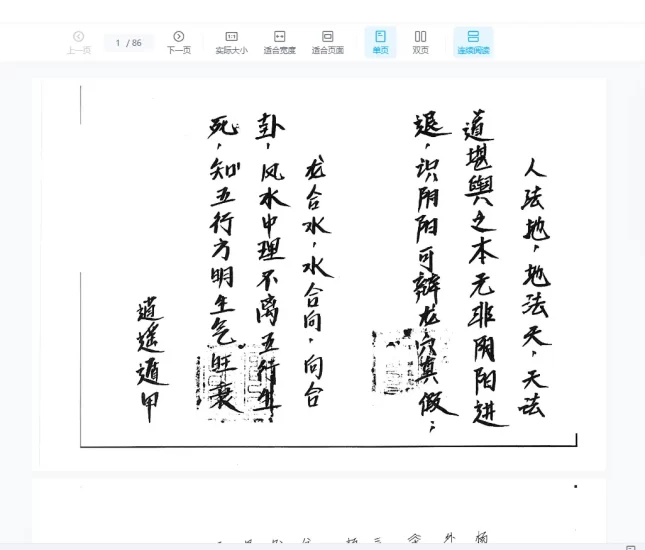 上一页
1 / 86
下一页
实际大小
适合宽度
适合页面
单页
双页
连续阅读
人法地,地法天,天法
道堪舆之本无非阴阳进
退,识阴阳可辩龙穴真假;
龙合水,水合向,向合
卦,风水中理不离五行生
死,知五行方明生气旺衰
逍遥遁甲